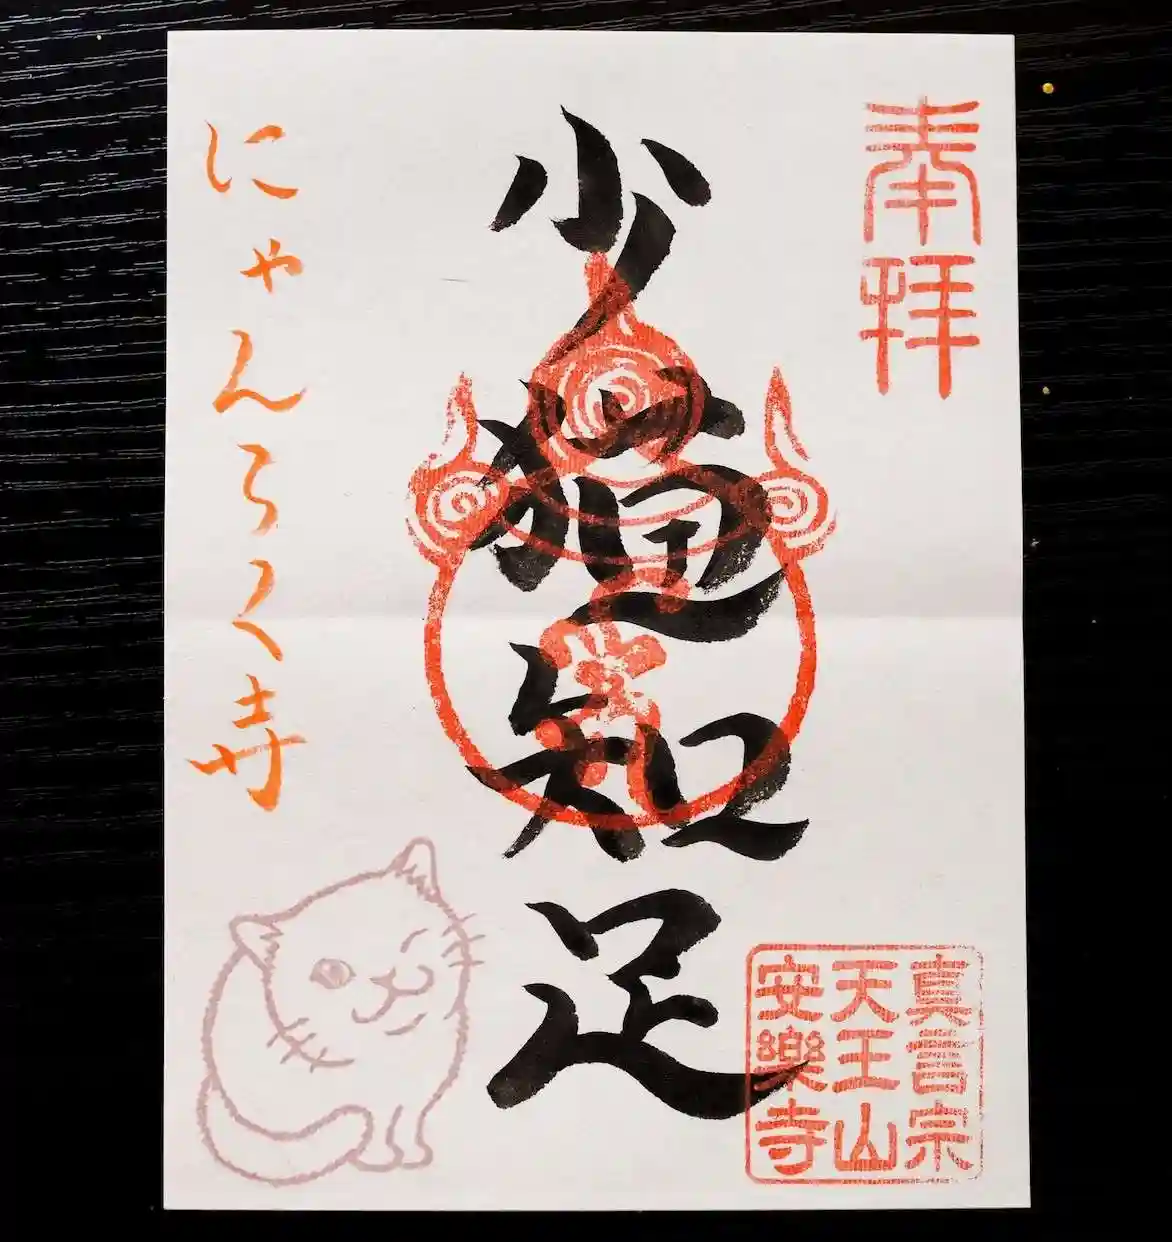 奉拝
少猫知足
真言宗
天王山
安樂寺
にゃんらく寺